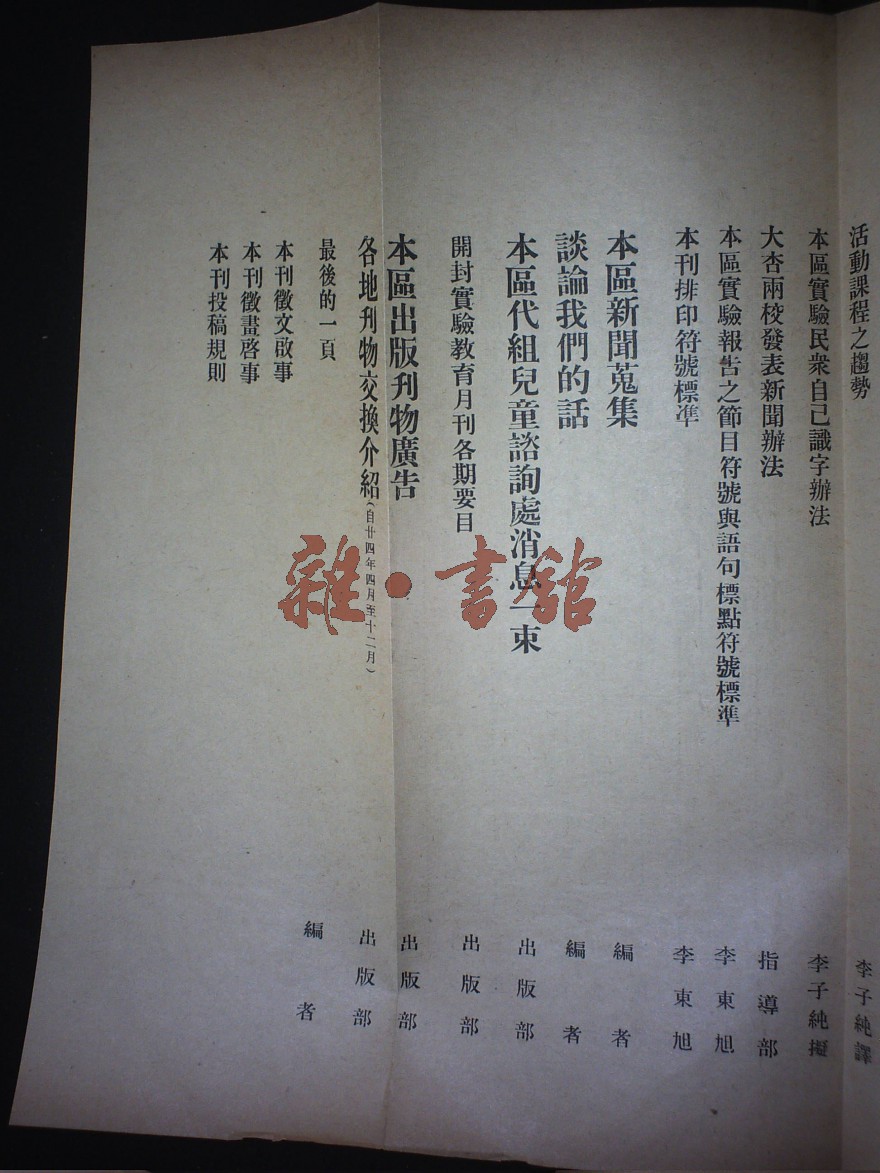 活動課程之趨勢 李子純譯
本區實驗民衆自己識字辦法 李子純擬
大杏兩校發表新聞辦法 指導部
本區實驗報告之節目符號與語句標點符號標準 李東旭
本刊排印符號標準 李東旭
本區新聞蒐集 編者
談論我們的話 編者
本區代組兒童諮詢處消息一束 出版部
開封實驗教育月刊各期要目 出版部
本區出版刋物廣告 出版部
各地刋物交換介紹(自廿四年四月至十二月) 出版部
最後的一頁 編者
本刊徵文啟事
本刊徵畫啓事
本刊投稿規則
雜·書館